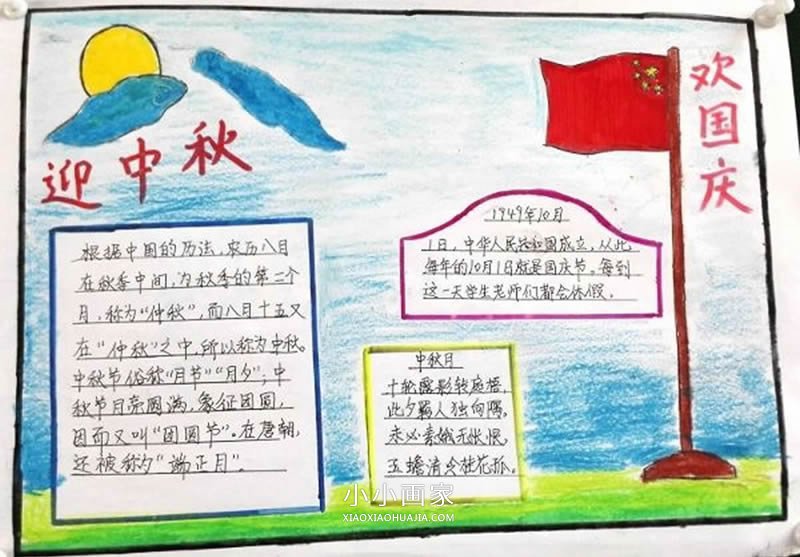 迎中秋
欢国庆
根据中国的历法，农历八月
在秋季中间，为秋季的第二个
月，称为“仲秋”，而八月十五又
在“仲秋”之中，所以称为中秋。
中秋节俗称“月节”“月夕”，中
秋节月亮圆满，象征团圆，
因而又叫“团圆节”。在唐朝，
还被称为“端正月”。
1949年10月
1日，中华人民共和国成立，从此，
每年的10月1日就是国庆节。每到
这一天学生老师们都会休假。
中秋月
十轮霜影转庭梧，
此夕羁人独向隅。
未必素娥无怅恨，
玉蟾清冷桂花孤。
小小画家
XIAOXIAOHUAJIA.COM